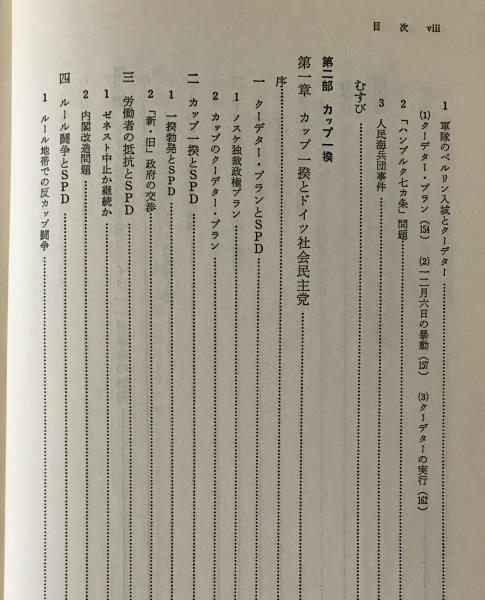 目次 viii
1 軍隊のベルリン入城とクーデター
(1)クーデター・プラン(154) (2)一二月六日の暴動(157) (3)クーデターの実行(162)
2 「ハンブルク七カ条」問題
3 人民海兵団事件
むすび
第二部 カップ一揆
第一章 カップ一揆とドイツ社会民主党
序
一 クーデター・プランとSPD
1 ノスケ独裁政権プラン
2 カップのクーデター・プラン
二 カップ一揆とSPD
1 一揆勃発とSPD
2 「新・旧」政府の交渉
三 労働者の抵抗とSPD
1 ゼネスト中止か継続か
2 内閣改造問題
四 ルール闘争とSPD
1 ルール地帯での反カップ闘争